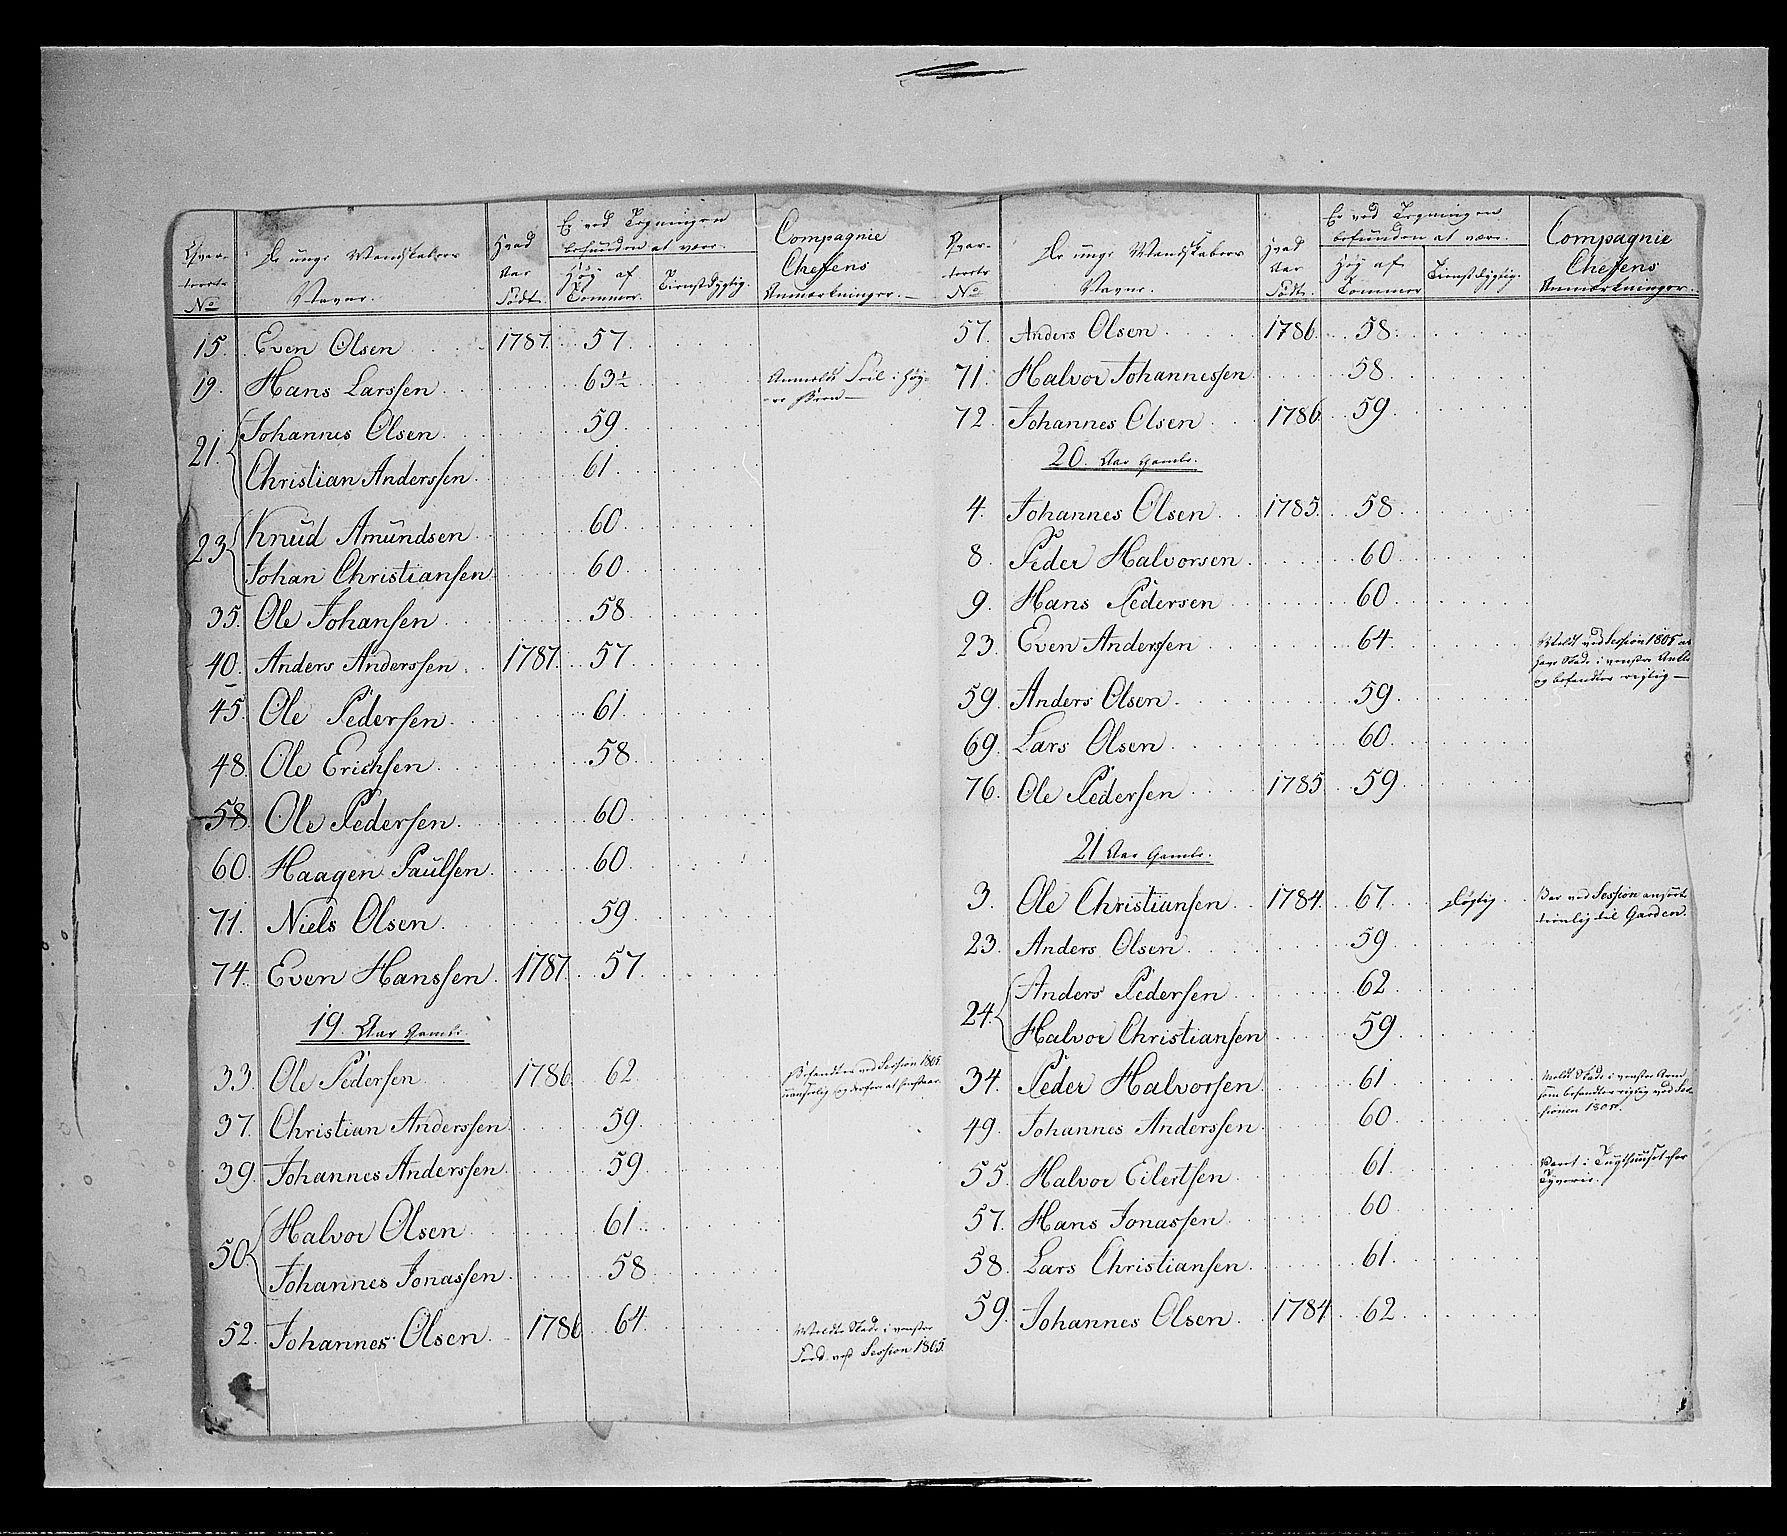 Qvar-
teers
No
De unge Mandskabers
Navne.
Hvad
Aar
Født.
Er ved Tegningen
befunden at være.
Høy af
Tommer.
Tienstdygtig.
Compagnie
Cheffens
Anmærkninger.
15. Even Olsen 1787. 57.
19. Hans Larssen 63½ Anmeldt Feil i høy-
re
21. Johannes Olsen. 59.
Christian Anderssen 61.
23. Knud Amundsen 60.
Johan Christiansen 60.
35. Ole Johansen 58.
40. Anders Anderssen. 1787. 57.
45. Ole Pedersen. 61.
48. Ole Erichsen 58.
58. Ole Pedersen. 60.
60. Haagen Paulsen. 60.
71. Niels Olsen. 59.
74. Even Hanssen. 1787. 57.
19. Aar Gamle.
33. Ole Pedersen 1786 62. Befandtes ved Session 1805.
37. Christian Anderssen 59.
39. Johannes Anderssen. 59.
50. Halvor Olsen 61.
Johannes Jonassen. 58.
52. Johannes Olsen. 1786 64. Meldte Skade i venstre
Fod ved Session 1805.
Qvar-
teers
No
De unge Mandskabers
Navne.
Hvad
Aar
Født.
Er ved Tegningen
befunden at være.
Høy af
Tommer
Tienstdygtig.
Compagnie
Cheffens
Anmærkninger.
57. Anders Olsen 1786. 58.
71. Halvor Johannessen 58.
72. Johannes Olsen 1786. 59.
20. Aar Gamle.
4. Johannes Olsen 1785. 58.
8. Peder Halvorsen. 60.
9. Hans Pedersen 60.
23. Even Anderssen 64. Meldt ved Session 1805 at
have Skade i venstre
og befandtes rigtig —
59. Anders Olsen. 59.
69. Lars Olsen. 60.
76. Ole Pedersen 1785 59.
21 Aar Gamle.
3. Ole Christiansen 1784. 67. Dygtig. Var ved Session anført
tienlig til Garden.
23. Anders Olsen. 59.
24. Anders Pedersen 62.
Halvor Christiansen 59.
34. Peder Halvorsen. 61. Meldt Skade i venstre Arm
som befandtes rigtig ved Ses-
sionen 1805.
49. Johannes Anderssen. 60.
55. Halvor Eilertsen. 61. Været i Tugthuuset for
Tyverie.
57. Hans Jonassen 60.
58. Lars Christiansen. 61.
59. Johannes Olsen. 1784 62.